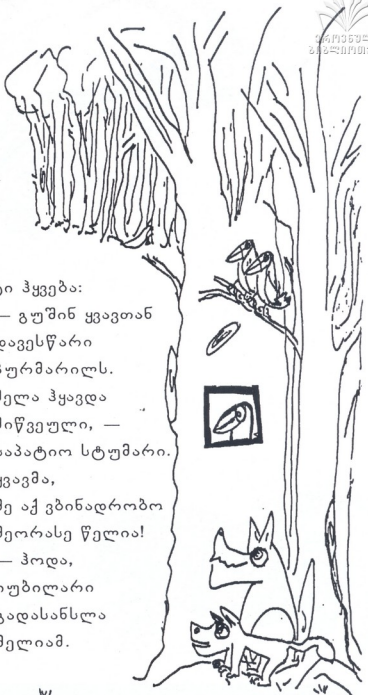 ეროვნულ
ბიბლიოთე
ტი ჰყვება:
— გუშინ ყვავთან
დავესწარი
პურმარილს.
მელა ჰყავდა
მიწვეული, —
საპატიო სტუმარი.
ყვავმა,
მე აქ ვბინადრობო
მეორასე წელია!
— ჰოდა,
იუბილარი
გადასანსლა
მელიამ.